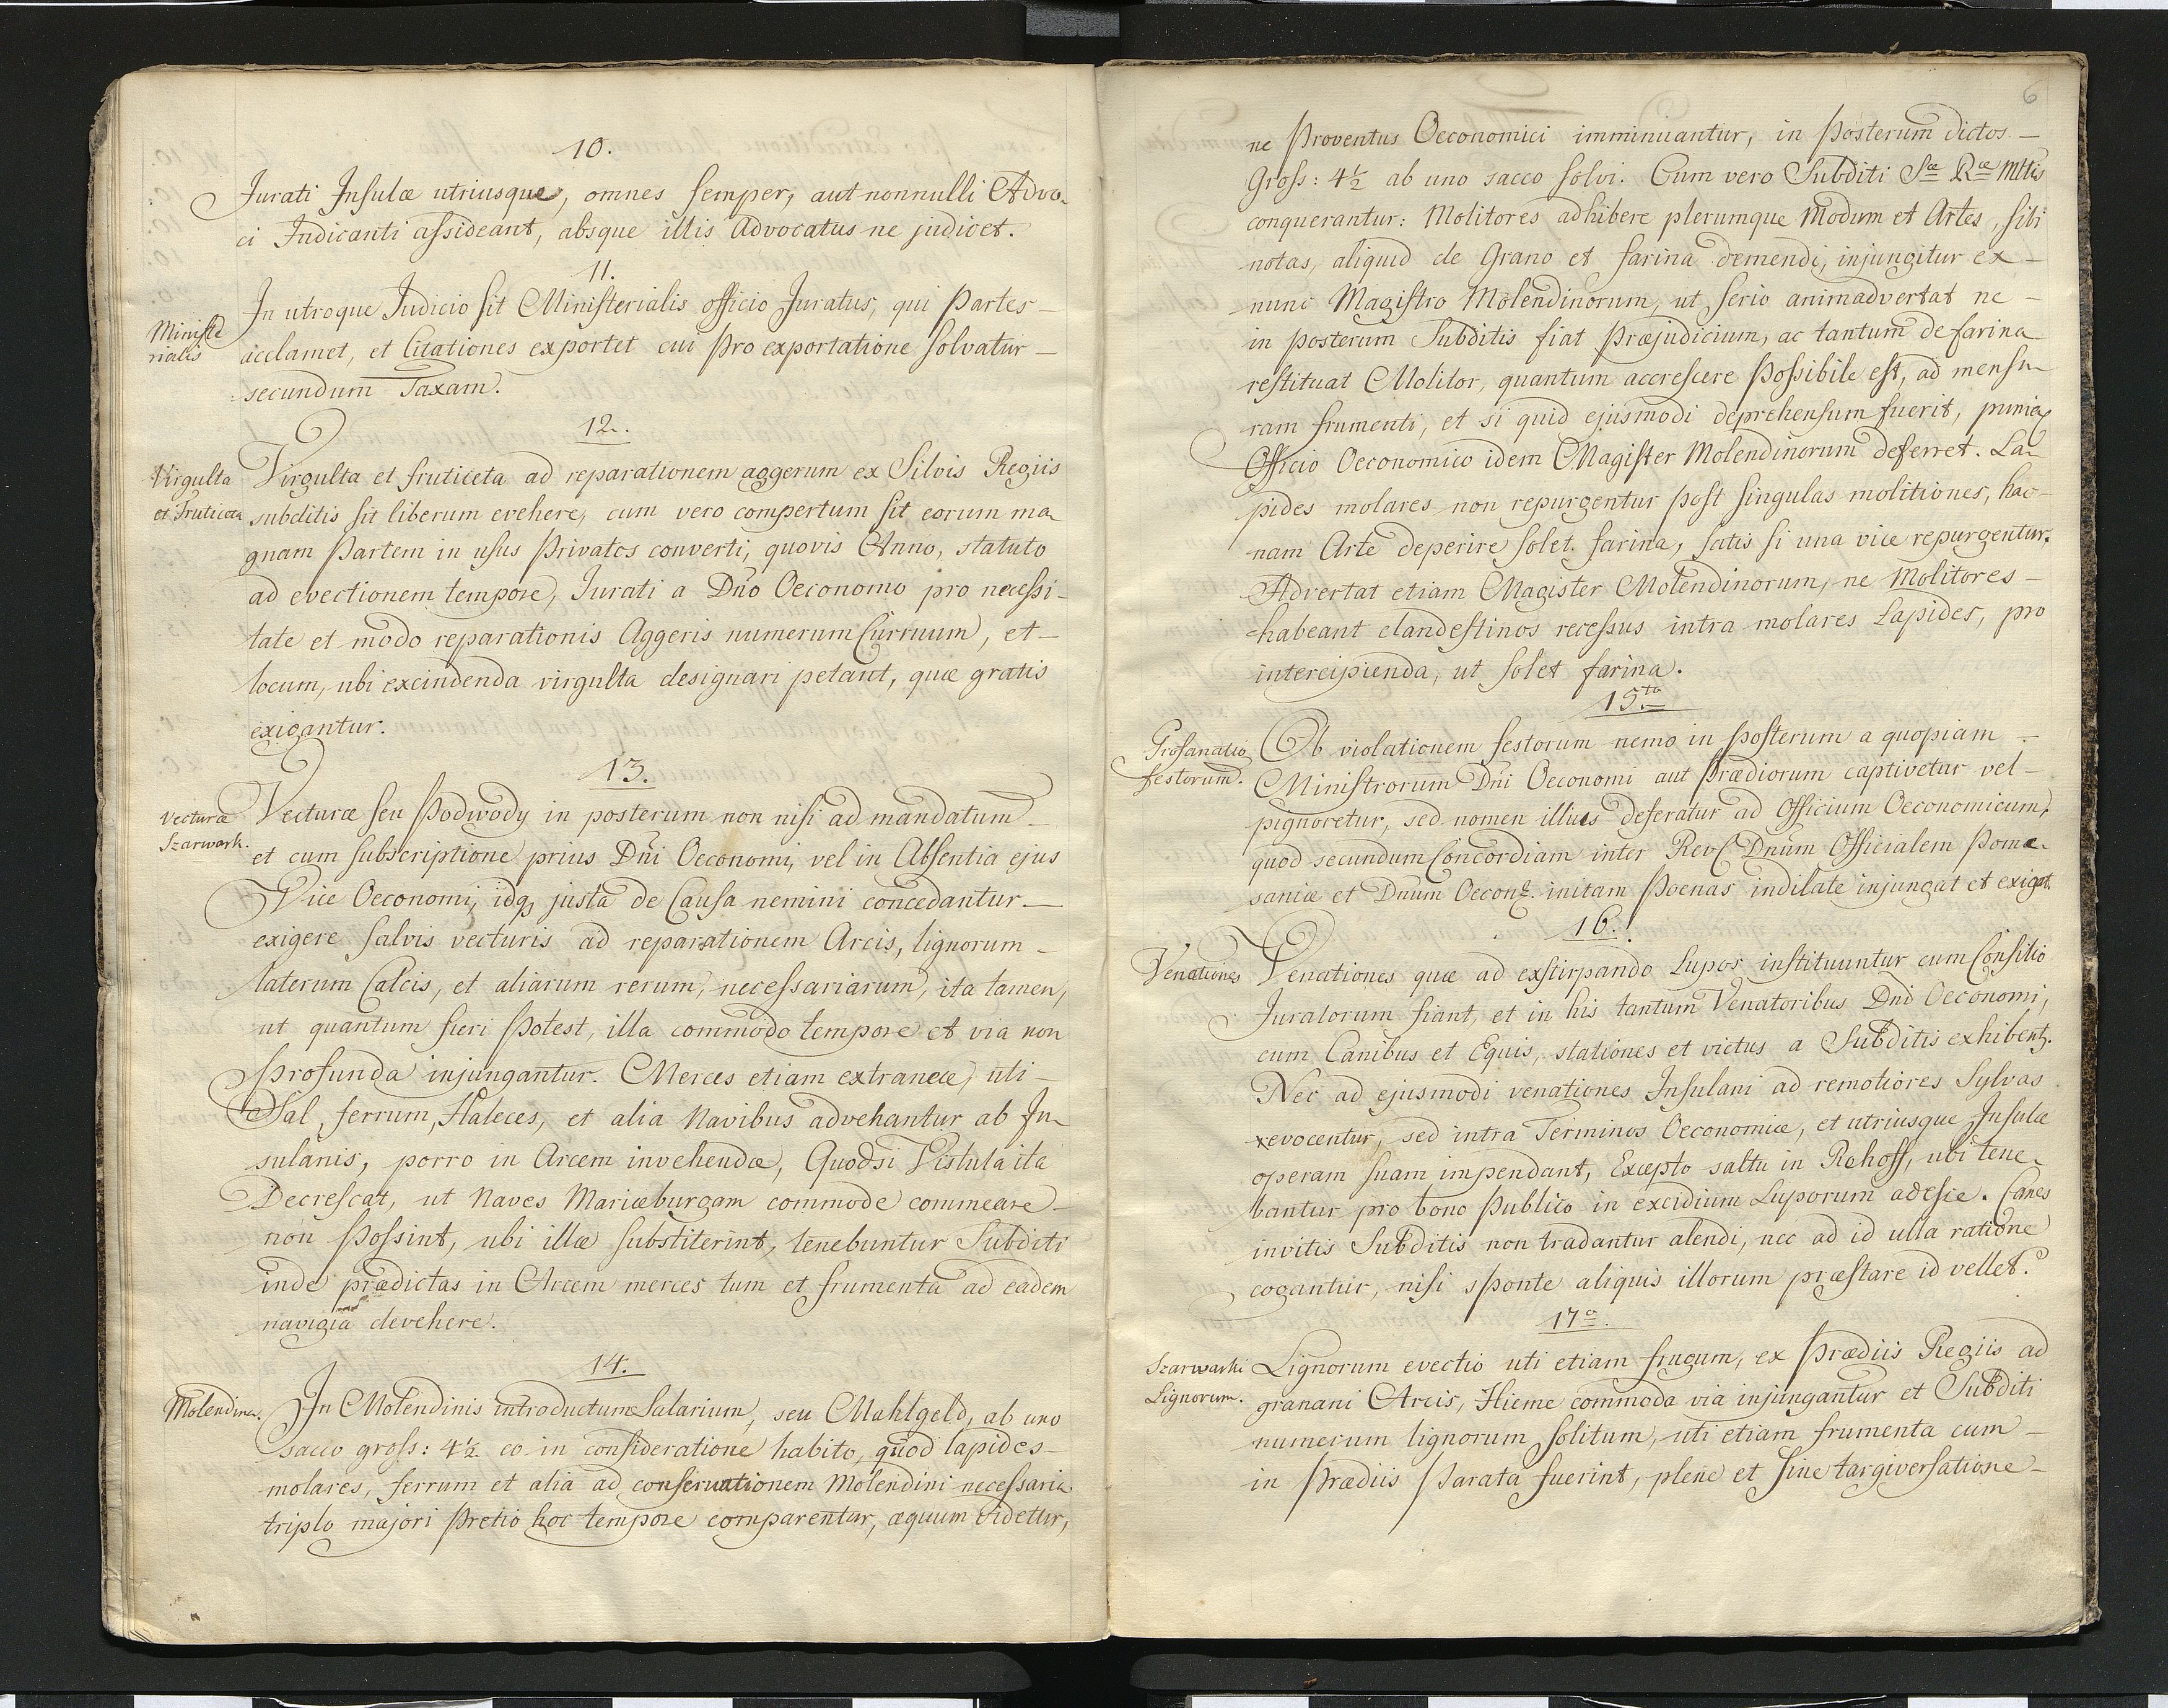 10.
Jurati Insulæ utriusque, omnes semper, aut nonnulli Advo-
ci Judicanti assideant, absque illis Advocatus ne judicet.
11.
Ministe
rialis
In utroque Judicio sit Ministerialis officio Juratus, qui Partes
acclamet, et Citationes exportet cui pro exportatione solvatur
secundum Taxam.
12.
Virgulta
et Fruticeta
Virgulta et fruticeta ad reparationem aggerum ex Silvis Regiis
subditis sit liberum evehere, cum vero compertum sit eorum ma
gnam Partem in usus Privatos converti, quovis Anno, statuto
ad evectionem tempore, Jurati a Dno Oeconomo pro necessi-
tate et modo reparationis Aggeris numerum Curruum, et
locum, ubi excindenda virgulta designari petant, quæ gratis
exigantur.
13.
Vecturæ
Szarwark.
Vecturæ seu Podwody in posterum non nisi ad mandatum
et cum subscriptione prius Dni Oeconomi, vel in Absentia ejus
Vice Oeconomi, idq; justa de Causa nemini concedantur
exigere salvis vecturis ad reparationem Arcis, lignorum
laterum Calcis, et aliarum rerum, necessariarum, ita tamen,
ut quantum fieri Potest, illa commodo tempore et via non
Profunda injungantur. Merces etiam extraneæ, uti
Sal, ferrum, Haleces, et alia Navibus advehantur ab In
sulanis, porro in Arcem invehendæ, Quodsi Vistula ita
Decrescat, ut Naves Mariæburgam commode commeare
non Possint, ubi illæ substiterint, tenebuntur Subditi
inde prædictas in Arcem merces tum et frumenta ad eadem
navigia devehere.
14.
Molendina.
In Molendinis introductum Salarium, seu Mahlgeld, ab uno
sacco gross: 4½ eo in consideratione habito, quod lapides
molares, ferrum et alia ad conservationem Molendini necessaria
triplo majori Pretio hoc tempore comparentur, æquum videtur,
6
ne Proventus Oeconomici imminuantur, in Posterum dictos
Gross: 4½ ab uno sacco solvi. Cum vero Subditi Sæ Ræ Mttis
conquerantur: Molitores adhibere plerumque Modum et Artes, sibi
notas, aliquid de Grano et farina demendi, injungitur ex
nunc Magistro Molendinorum, ut serio animadvertat ne
in posterum Subditis fiat Præjudicium, ac tantum de farina
restituat Molitor, quantum accrescere Possibile est, ad mensu
ram frumenti, et si quid ejusmodi deprehensum fuerit,
Officio Oeconomico idem Magister Molendinorum deferret. La-
pides molares non repurgentur post singulas molitiones, hac
nam Arte deperire solet farina, satis si una vice repurgentur.
Advertat etiam Magister Molendinorum, ne Molitores
habeant clandestinos recessus intra molares Lapides, pro
intercipienda, ut solet farina.
15to
Profanatio
festorum.
Ob violationem festorum nemo in Posterum a quopiam
Ministrorum Dni Oeconomi aut Prædiorum captivetur vel
pignoretur, sed nomen illius deferatur ad Officium Oeconomicum,
quod secundum Concordiam inter Rev Dnum Officialem Pome-
saniæ et Dnum Oecon. initam Poenas indilate injungat et exigat.
16.
Venationes
Venationes quæ ad exstirpando Lupos instituuntur cum Consilio
Juratorum fiant, et in his tantum Venatoribus Dni Oeconomi,
cum Canibus et Equis, stationes et victus a Subditis exhibent.
Nec ad ejusmodi venationes Insulani ad remotiores Sylvas
revocentur, sed intra Terminos Oeconomiæ, et utriusque Insulæ
operam suam impendant, Excepto saltu in Rehoff, ubi tene-
bantur pro bono Publico in excidium Luporum adesse. Canes
invitis Subditis non tradantur alendi, nec ad id ulla ratione
cogantur, nisi sponte aliquis illorum præstare id vellet.
17o.
Szarwarki
Lignorum.
Lignorum evectio uti etiam frugum, ex Prædiis Regiis ad
granani Arcis, Hieme commoda via injungantur et Subditi
numerum lignorum solitum, uti etiam frumenta cum
in Prædiis Parata fuerint, plene et sine targiversatione